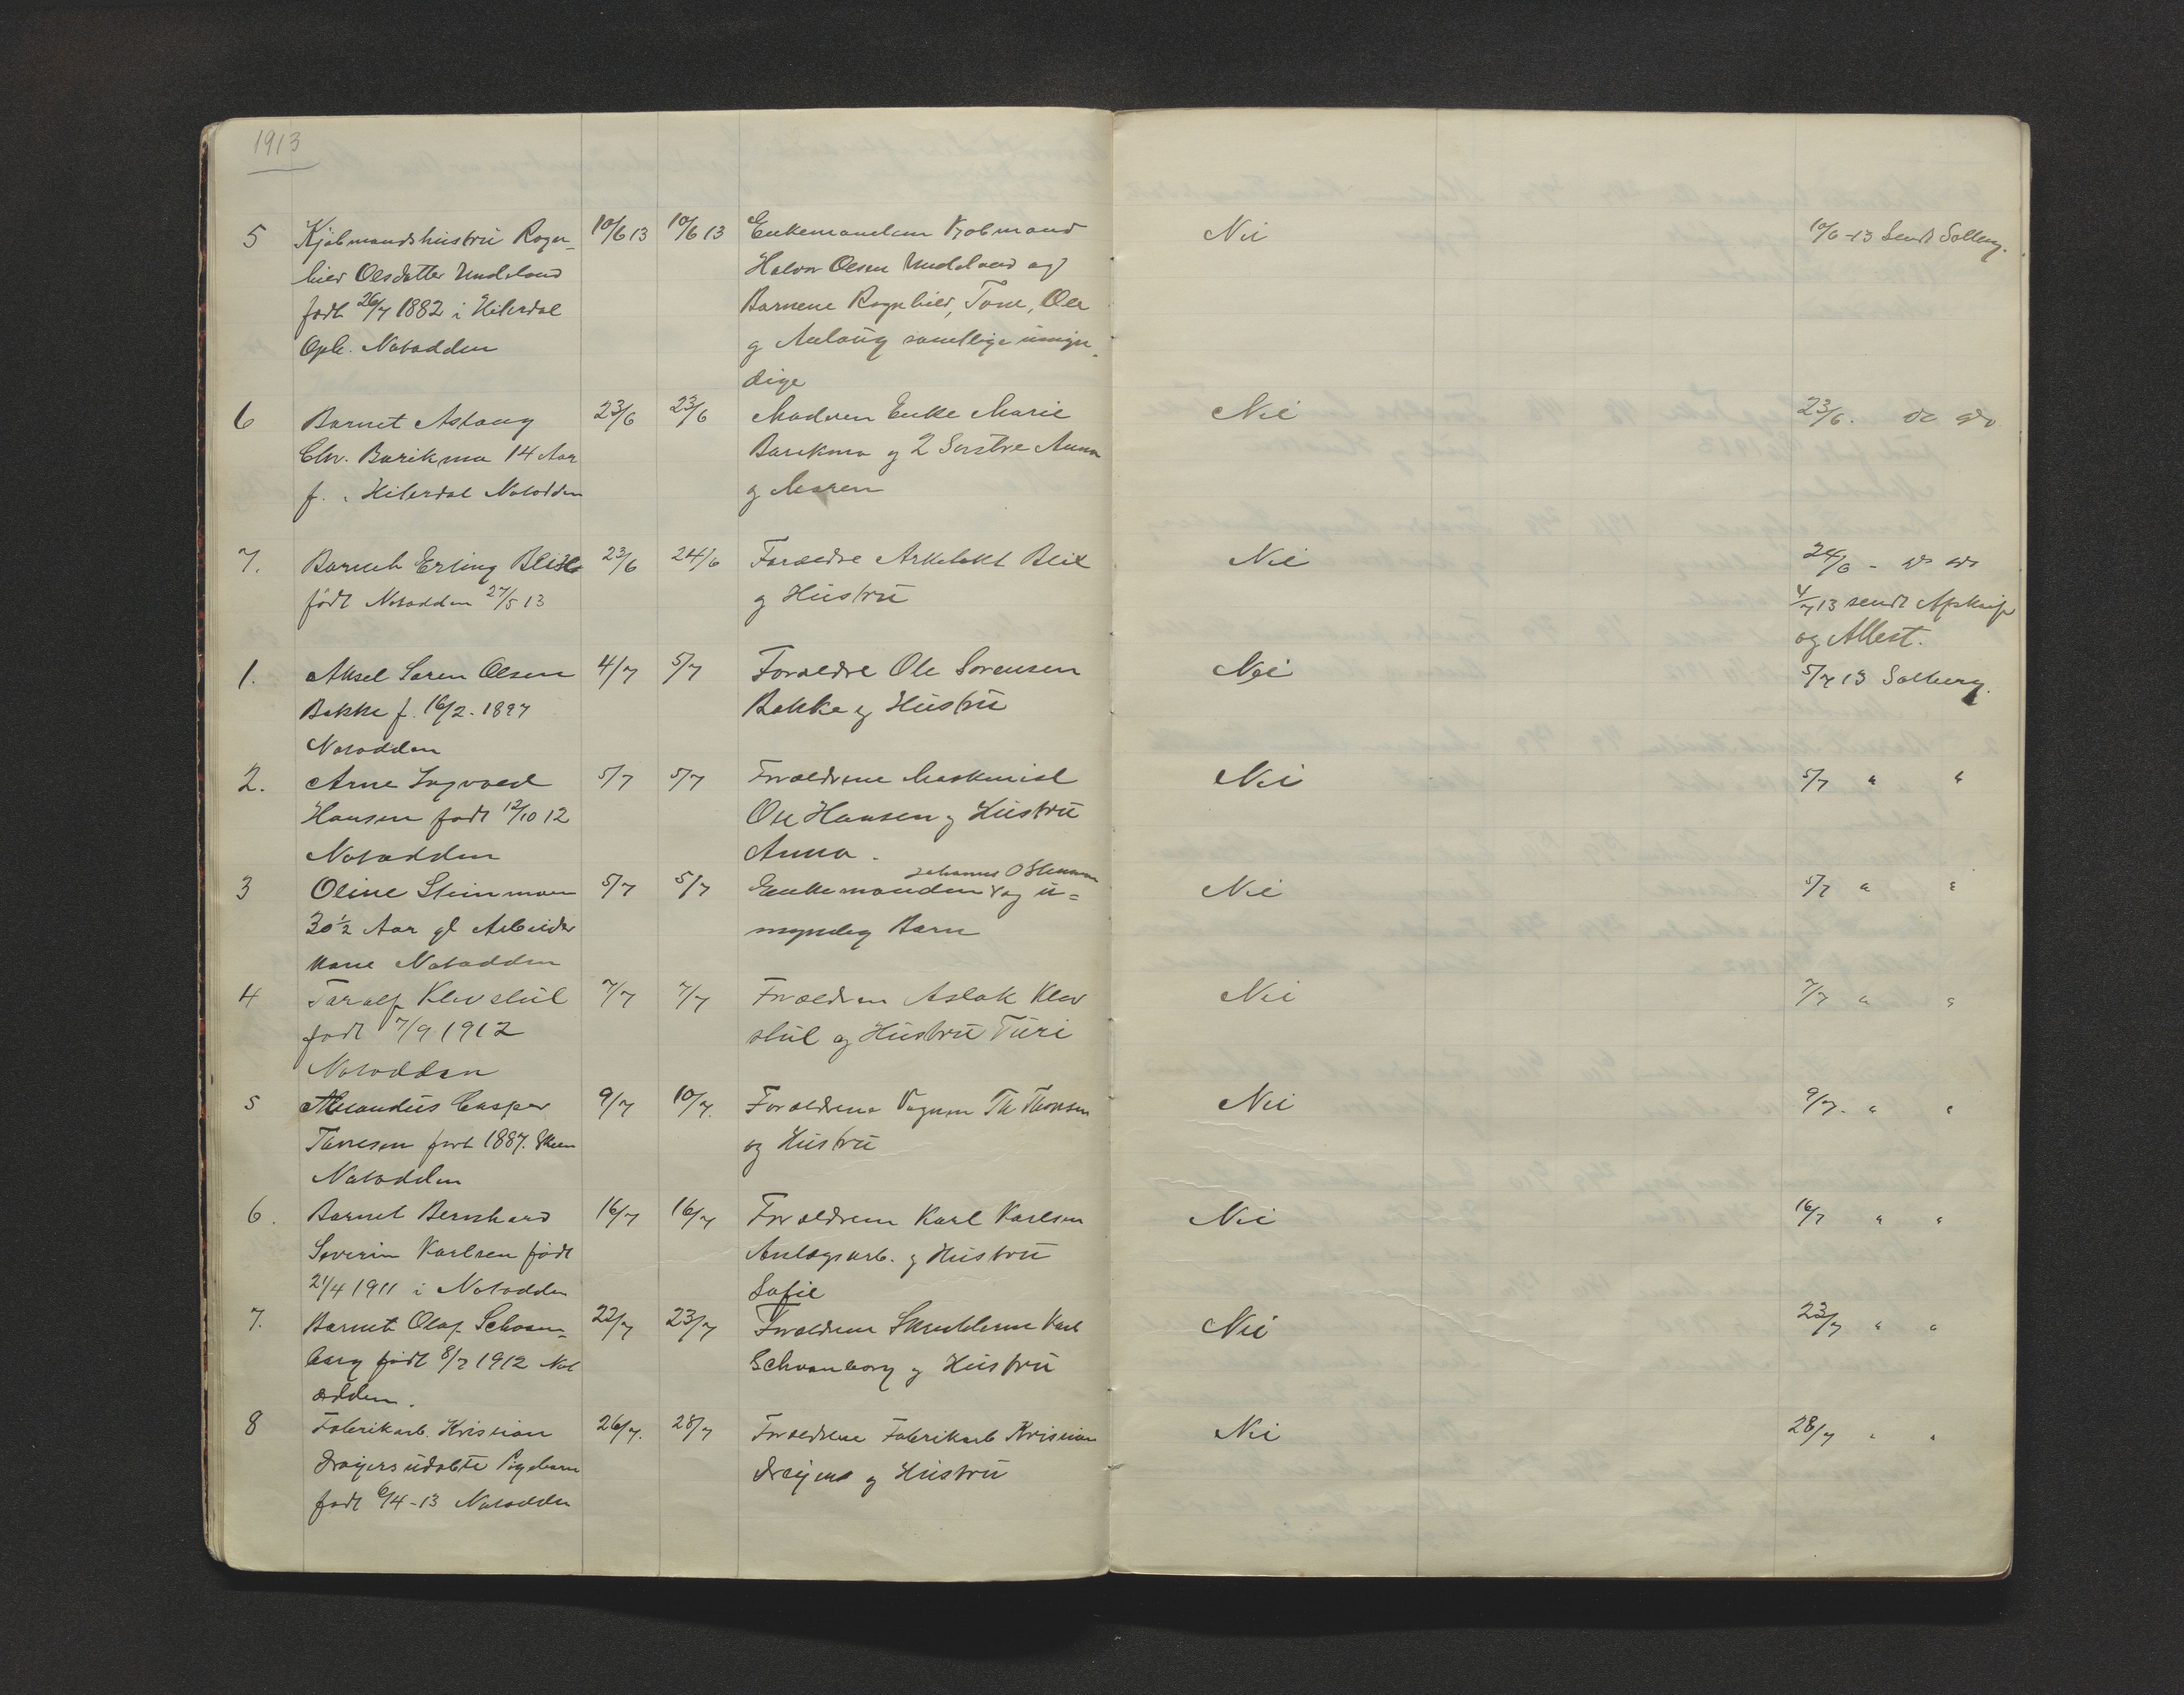 1913
5 Kjøbmandshustru Ragn- 10/6 13 10/6 13 Enkemanden Kjøbmand Nei 10/6-13 Sendt Solberg.
hild Olsdatter Undeland Halvor Olsen Undeland og
født 26/7 1882 i Hiterdal Barnene Ragnhild, Tone, Ole
Oph. Notodden og Aslaug samtlige umyn-
dige
6 Barnet Aslaug 23/6 23/6 Moderen Enke Marie Nei 23/6. do do
Chr. Barikmo 14 Aar Barikmo og 2 Søstre Anna
f. i Hiterdal Notodden og Maren
7. Barnet Erling Blix 23/6 24/6 Forældre Arkitekt Blix Nei 24/6 - do do
født Notodden 27/5 13 og Hustru 4/7 13 sendt Afskrift
og Attest.
1. Aksel Søren Olsen 4/7 5/7 Forældre Ole Sørensen Nei 5/7 13 Solberg.
Bakke f. 16/2-1897 Bakke og Hustru
Notodden
2. Arne Ingvald 5/7 5/7 Forældrene Maskinist Nei 5/7 " "
Hansen født 12/10 12 Ole Hansen og Hustru
Notodden Anna.
Johannes O Steinmoen
3 Oline Steinmoen 5/7 5/7 Enkemanden og u= Nei 5/7 " "
30½ Aar gl Arbeider myndig Barn
kone Notodden
4 Taralf Klevstul 7/7 7/7 Forældrene Aslak Klev Nei 7/7 " "
født 7/9 1912 stul og Hustru Turi
Notodden
5 Alexandius Casper 9/7 10/7. Forældrene Th Thorsen Nei 9/7. " "
født 1887. Skien og Hustru
Notodden
6. Barnet Bernhard 16/7 16/7 Forældrene Karl Karlsen Nei 16/7 " "
Severin Karlsen født Anlægsarb. og Hustru
21/4 1911 i Notodden Sofie
7. Barnet Olaf Schvan- 22/7 23/7 Forældrene Karl Nei 23/7 " "
berg født 8/7 1912 Not Schvanberg og Hustru
odden.
8 Fabrikarb. Kristian 26/7. 28/7 Forældrene Fabrikarb Kristian Nei 28/7 " "
Dreyers udøbte Pigebarn Dreyers og Hustru
født 6/4-13 Notodden